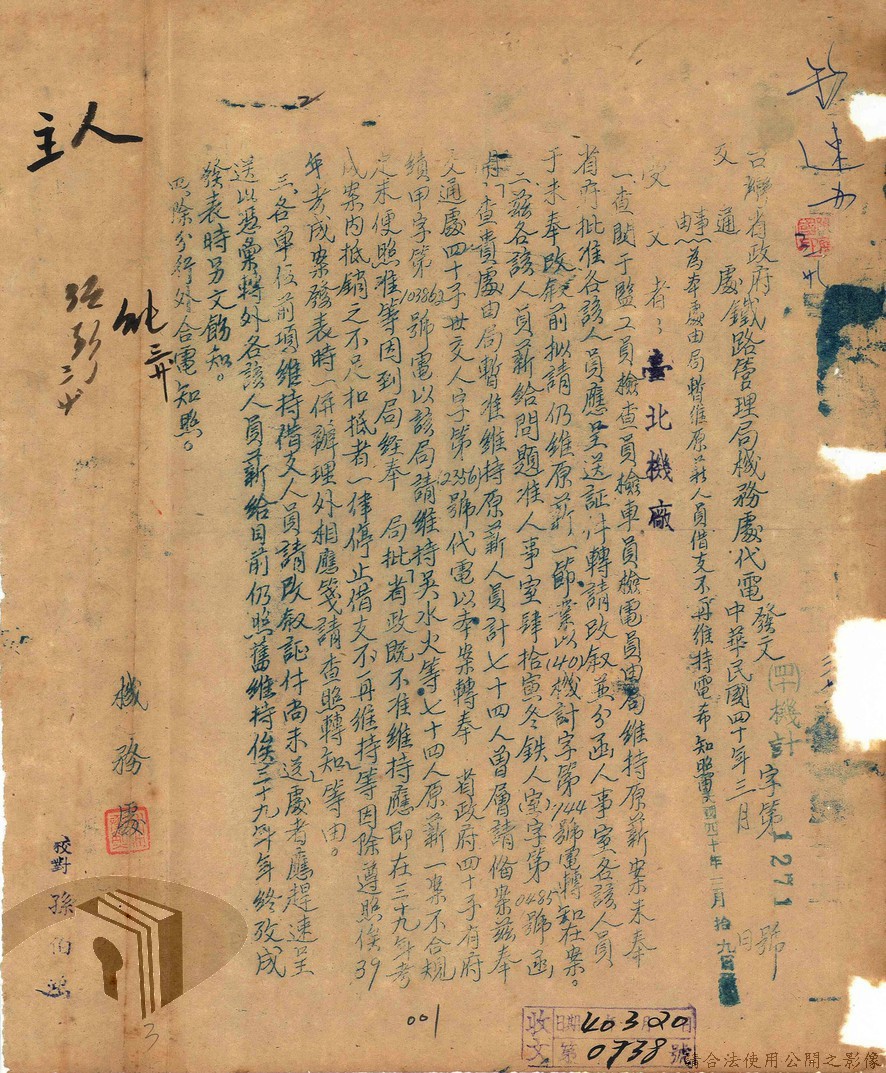 台灣省政府鐵路管理局機務處代電
發文 中華民國四十年三月 日
(四十)機計 字第1271號
交通處
事由：為奉處由局暫准原薪人員借支不再維持電希知照
中華民國四十年三月拾九日
受文者：臺北機廠
一、查関于監工員檢查員檢車員檢電員由局維持原薪案未奉
省府批准各該人員應呈送証件轉請改叙並分函人事室各該人員
于未奉改叙前拟請仍維原薪一節業以(40)機計字第744號電轉知在案。
二、茲各該人員薪給問題准人事室肆拾寅冬鉄人室字第0485號函
開：「查貴處由局暫准維持原薪人員計七十四人曾層請俻案茲奉
交通處四十子世交人字第(2356)號代電以本案轉奉 省政府四十子有府
績甲字第(03862)號電以該局請維持吳水火等七十四人原薪一案不合規
定未便照准等因到局經奉 局批「省政既不准維持應即在三十九年考
成案内抵銷之不足扣抵者一律停止借支不再維持等因除遵照俟39
年考成案發表時一併辦理外相應箋請查照轉知」等由。
三、各單位前項維持借支人員請改叙証件尚未送處者應趕速呈
送以憑彙轉外各該人員薪給目前仍照舊維持俟三十九年年終攷成
發表時另文飭知。
四、除分行外合電知照。
機務處
校對 孫伯
速办
主人
001
3
收文 日期 40 3 20
第 0738 號
請合法使用公開之影像